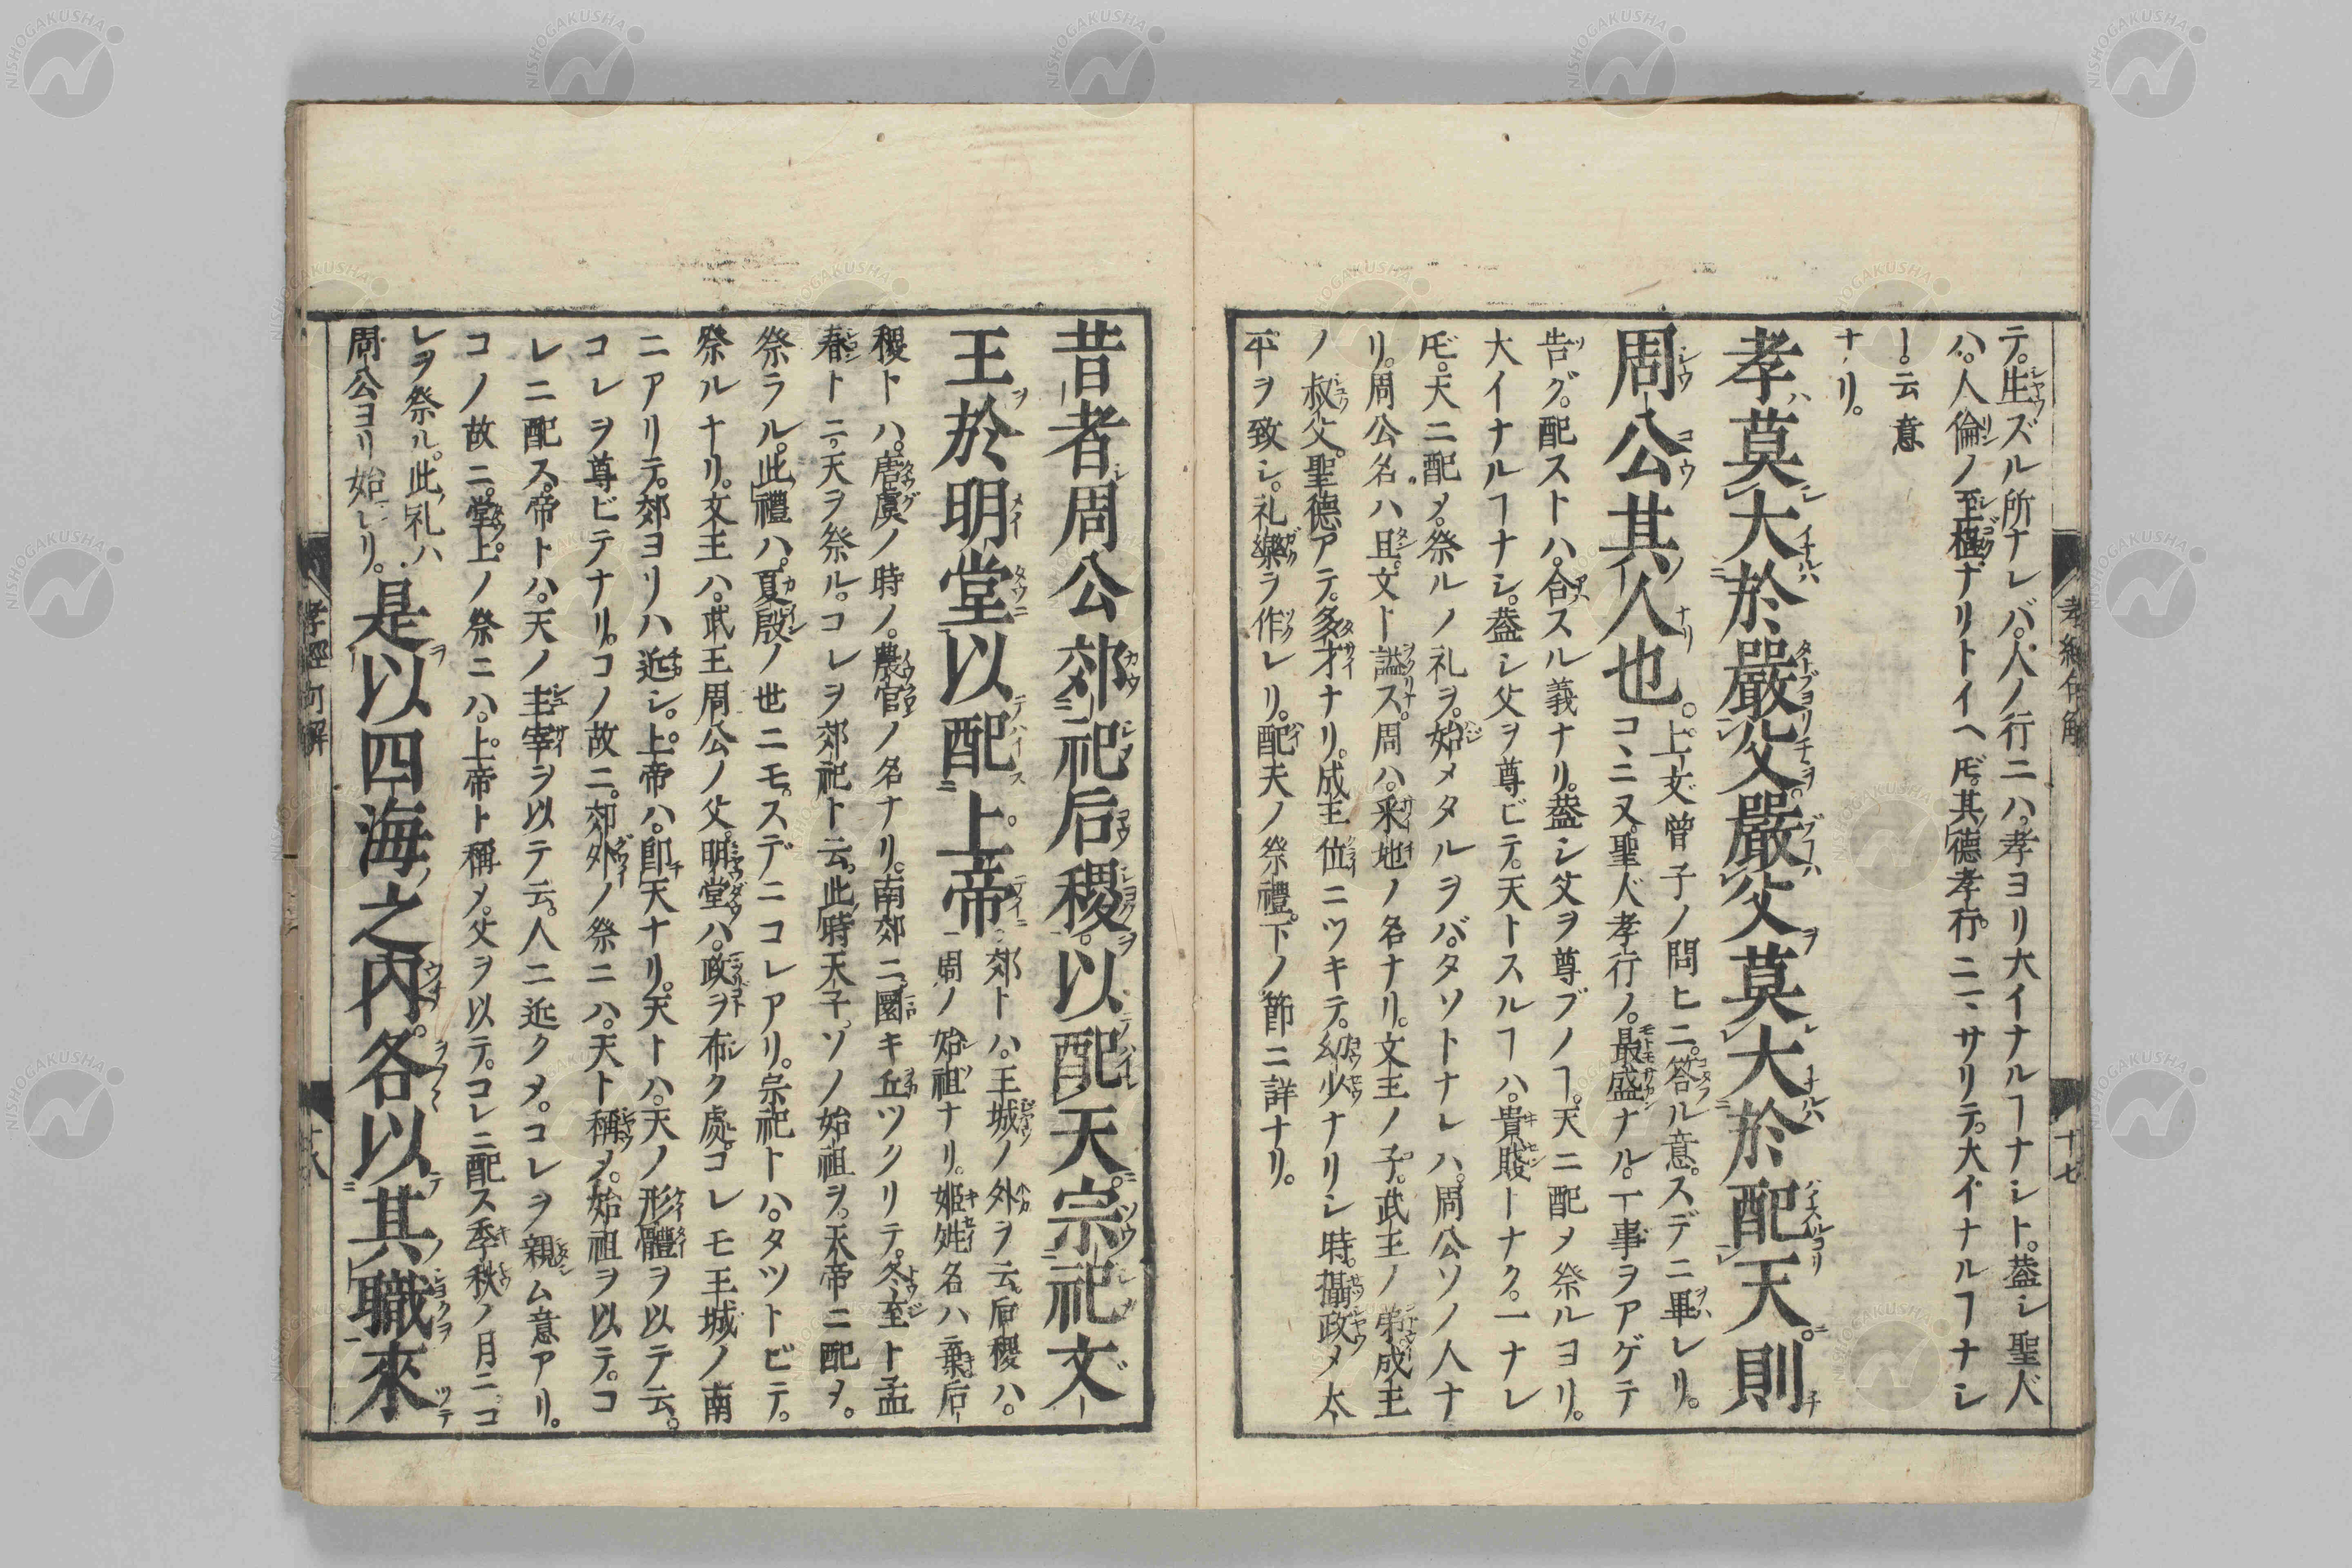 テ。生ズル所ナレバ。人ノ行ニハ。孝ヨリ大イナルヿナシト。蓋シ聖人
ハ。人倫ノ至極ナリトイヘ𪜈。其德孝行ニ、サリテ。大イナルヿナシ
ト云意
ナリ。
孝莫大於嚴父嚴父莫大於配天。則
周公其人也。
上文曾子ノ問ヒニ。答ル意。スデニ畢レリ。
コヽニ又聖人孝行ノ。最盛ナル。一事ヲアゲテ
告グ。配ストハ。合スル義ナリ。蓋シ父ヲ尊ブノヿ。天ニ配メ祭ルヨリ。
大イナルヿナシ。蓋シ父ヲ尊ビテ。天トスルヿハ。貴賤トナク。一ナレ
𪜈。天ニ配メ。祭ルノ礼ヲ。始メタルヲバ。タソトナレハ。周公ソノ人ナ
リ。周公名ハ旦。文ト謚ス。周ハ。采地ノ名ナリ。文王ノ子。武王ノ弟。成王
ノ叔父。聖德アテ。多才ナリ。成王位ニツキテ。幼少ナリシ時。攝政メ太
平ヲ致シ。礼樂ヲ作レリ。配天ノ祭禮。下ノ節ニ詳ナリ。
孝經句解
十七
昔者周公郊祀后稷。以配天。宗祀文
王於明堂以配上帝
郊トハ。王城ノ外ヲ云。后稷ハ。
周ノ始祖ナリ。姬姓名ハ棄。后
稷トハ。唐虞ノ時ノ。農官ノ名ナリ。南郊ニ。圜キ丘ツクリテ。冬至ト孟
春トニ。天ヲ祭ル。コレヲ郊祀ト云。此時天子。ソノ始祖ヲ。天帝ニ配ヲ。
祭ラル。此禮ハ。夏殷ノ世ニモ。スデニコレアリ。宗祀トハ。タツトビテ。
祭ルナリ。文王ハ。武王周公ノ父。明堂ハ。政ヲ布ク處。コレモ王城ノ南
ニアリテ。郊ヨリハ近シ。上帝ハ。卽天ナリ。天トハ。天ノ形體ヲ以テ云。
コレヲ尊ビテナリ。コノ故ニ。郊外ノ祭ニハ。天ト稱メ。始祖ヲ以テ。コ
レニ配ス。帝トハ。天ノ主宰ヲ以テ云。人ニ近クメ。コレヲ親ム意アリ。
コノ故ニ。堂上ノ祭ニハ。上帝ト稱メ。父ヲ以テ。コレニ配ス季秋ノ月ニ。コ
レヲ祭ル。此礼ハ
周公ヨリ始レリ。
是以四海之內。各以其職來
孝經句解
十八